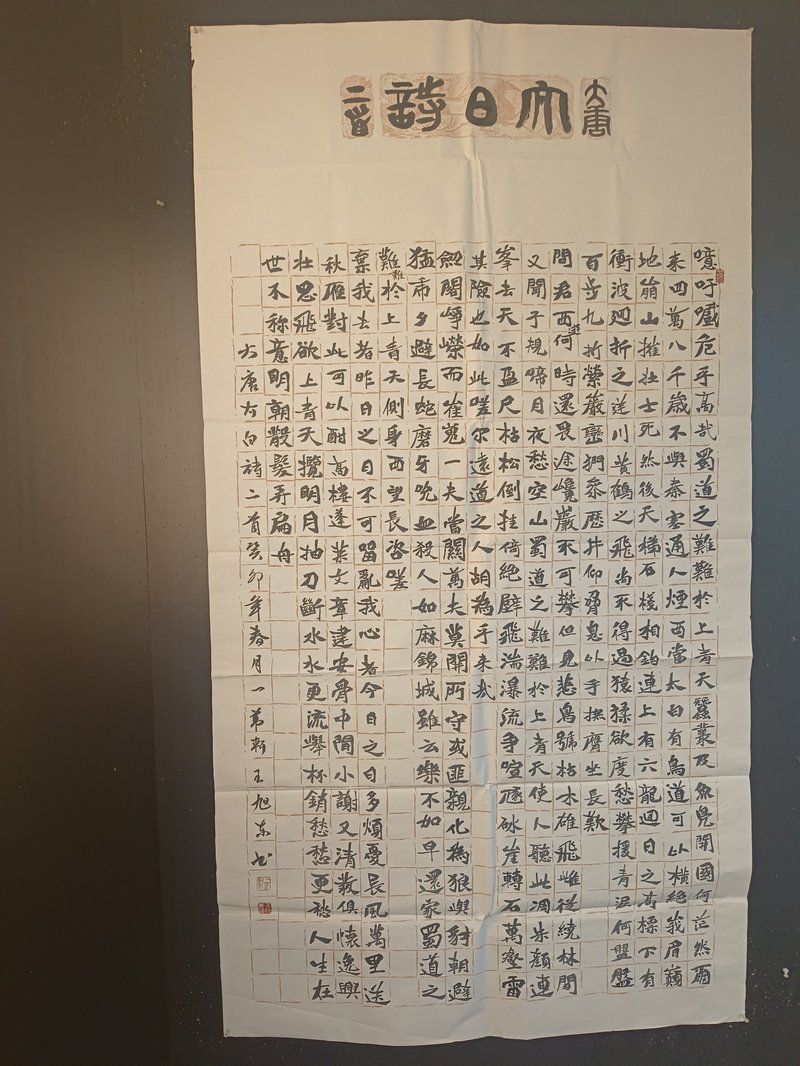 大唐
太白詩
二首
噫吁嚱危乎高哉蜀道之難難於上青天蠶叢及魚鳧開國何茫然爾
来四萬八千歲不與秦塞通人煙西當太白有鳥道可以橫絕峩眉巔
地崩山摧壮士死然後天梯石棧相鈎連上有六龍迴日之高標下有
衝波廻折之逆川黄鶴之飛尚不得過猿猱欲度愁攀援青泥何盤盤
百步九折縈巖巒捫叅歷井仰脅息以手撫膺坐長歎
問君西遊何時還畏途巉巖不可攀但見悲鳥號枯木雄飛雌從繞林間
又聞子規啼月夜愁空山蜀道之難難於上青天使人聽此凋朱顏連
峯去天不盈尺枯松倒挂倚絕壁飛湍瀑流爭喧豗砯崖轉石萬壑雷
其險也如此嗟尔遠道之人胡為乎来哉
劍閣崢嶸而崔嵬一夫當關萬夫莫開所守或匪親化為狼與豺朝避
猛虎夕避長蛇磨牙吮血殺人如麻錦城雖云樂不如早還家蜀道之
難難於上青天側身西望長咨嗟
棄我去者昨日之日不可留亂我心者今日之日多煩憂長風萬里送
秋雁對此可以酣高樓蓬莱文章建安骨中間小謝又清發俱懷逸興
壮思飛欲上青天攬明月抽刀斷水水更流舉杯銷愁愁更愁人生在
世不称意明朝散髮弄扁舟
大唐太白詩二首癸卯年春月一苇軒王旭东书